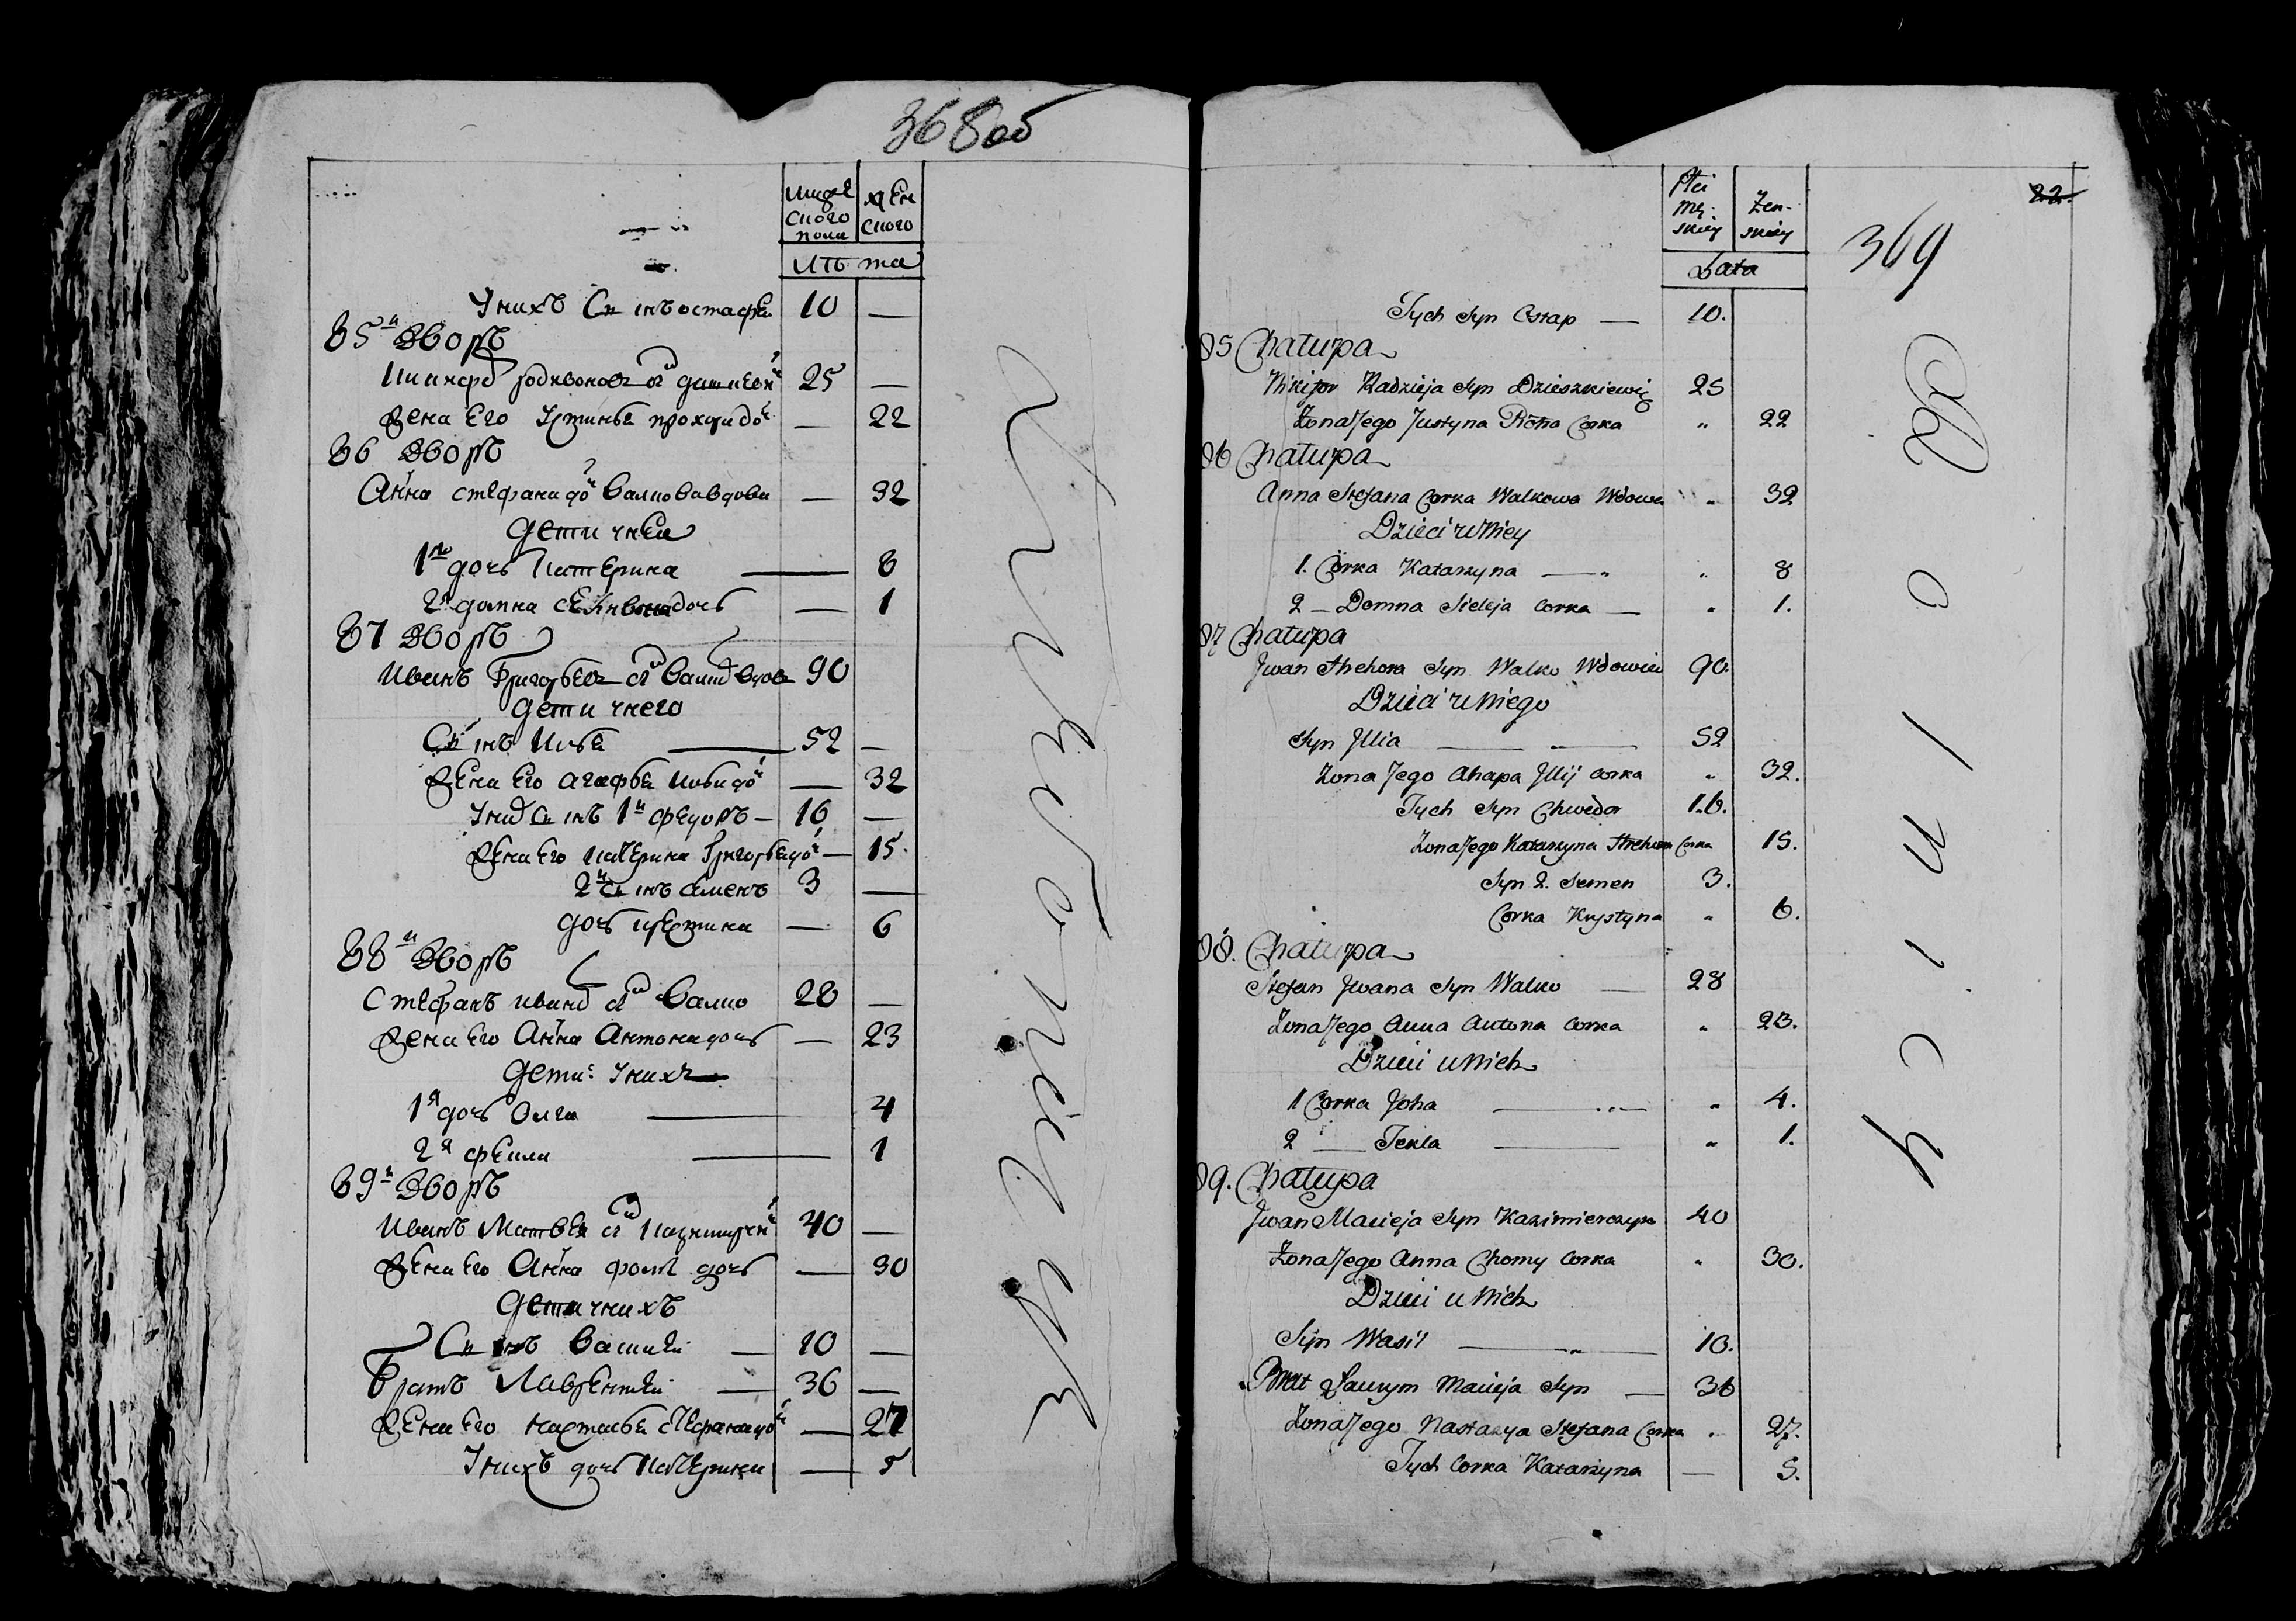 368об
мужеского пола
женского
лѣта
У нихъ Сынъ остафеи 10 —
85й Дворъ
Никифоръ родивоновъ сй 25 —
жена Его Устинья — 22
86 Дворъ
Анна стефана до Валкова вдова — 32
Дети у неи
1я дочь Катерина — 8
2я домна дочь — 1
87 Дворъ
Иванъ Григорьевъ сй Валко 90
Дети у него
Сынъ Илья 52 —
жена Его агафья — 32
У нихъ сынъ 1й федоръ — 16 —
жена Его Катерина Григорьева до — 15
2й сынъ семенъ 3 —
дочь — 6
88й Дворъ
Стефанъ ивана сй Валко 28 —
жена Его Анна Антона дочь — 23
Дети У нихъ
1я дочь Олга — 4
2я фекла — 1
89й Дворъ
Иванъ Матвея сй 40 —
жена Его Анна фомы дочь — 30
Дети у нихъ
Сынъ Василеи — 10 —
Братъ Лаврентеи — 36 —
жена Его настасья стефана до — 27
У нихъ дочь Катерина — 5
Płci Mę-skiey
Żen-skiey
Lata
22.
369
Tych Syn Ostap — 10.
85 Chałupa
Nikifor Radzieja Syn Dzieszkiewicz 25
Żona Jego Justyna Córka „ 22
86 Chałupa
Anna Stefana Corka Walkowa Wdowa „ 32
Dzieci u Niey
1. Corka Katarzyna — „ 8
2 — Domna Corka — „ 1.
87 Chałupa
Jwan Hrehora Syn Walko Wdowiec 90.
Dzieci u Niego
Syn Jllia — 52
Żona Jego Ahapa Jllij Corka „ 32.
Tych Syn Chwedor 16.
Żona Jego Katarzyna Hrehora Corka 15.
Syn 2. Semen 3.
Corka Krystyna „ 6.
88. Chałupa
Stefan Jwana Syn Walko — 28
Żona Jego Anna Antona Corka „ 23.
Dzieci u Nich
1 Corka Joha — „ 4.
2 — Tekla — „ 1.
89. Chałupa
Jwan Macieja Syn Kazimierczyk 40
Żona Jego Anna Chomy Corka „ 30.
Dzieci u Nich
Syn Wasil — 10.
Brat Ławryn Macieja Syn — 36
Żona Jego Nastazya Stefana Corka „ 27.
Tych Corka Katarzyna — 5.